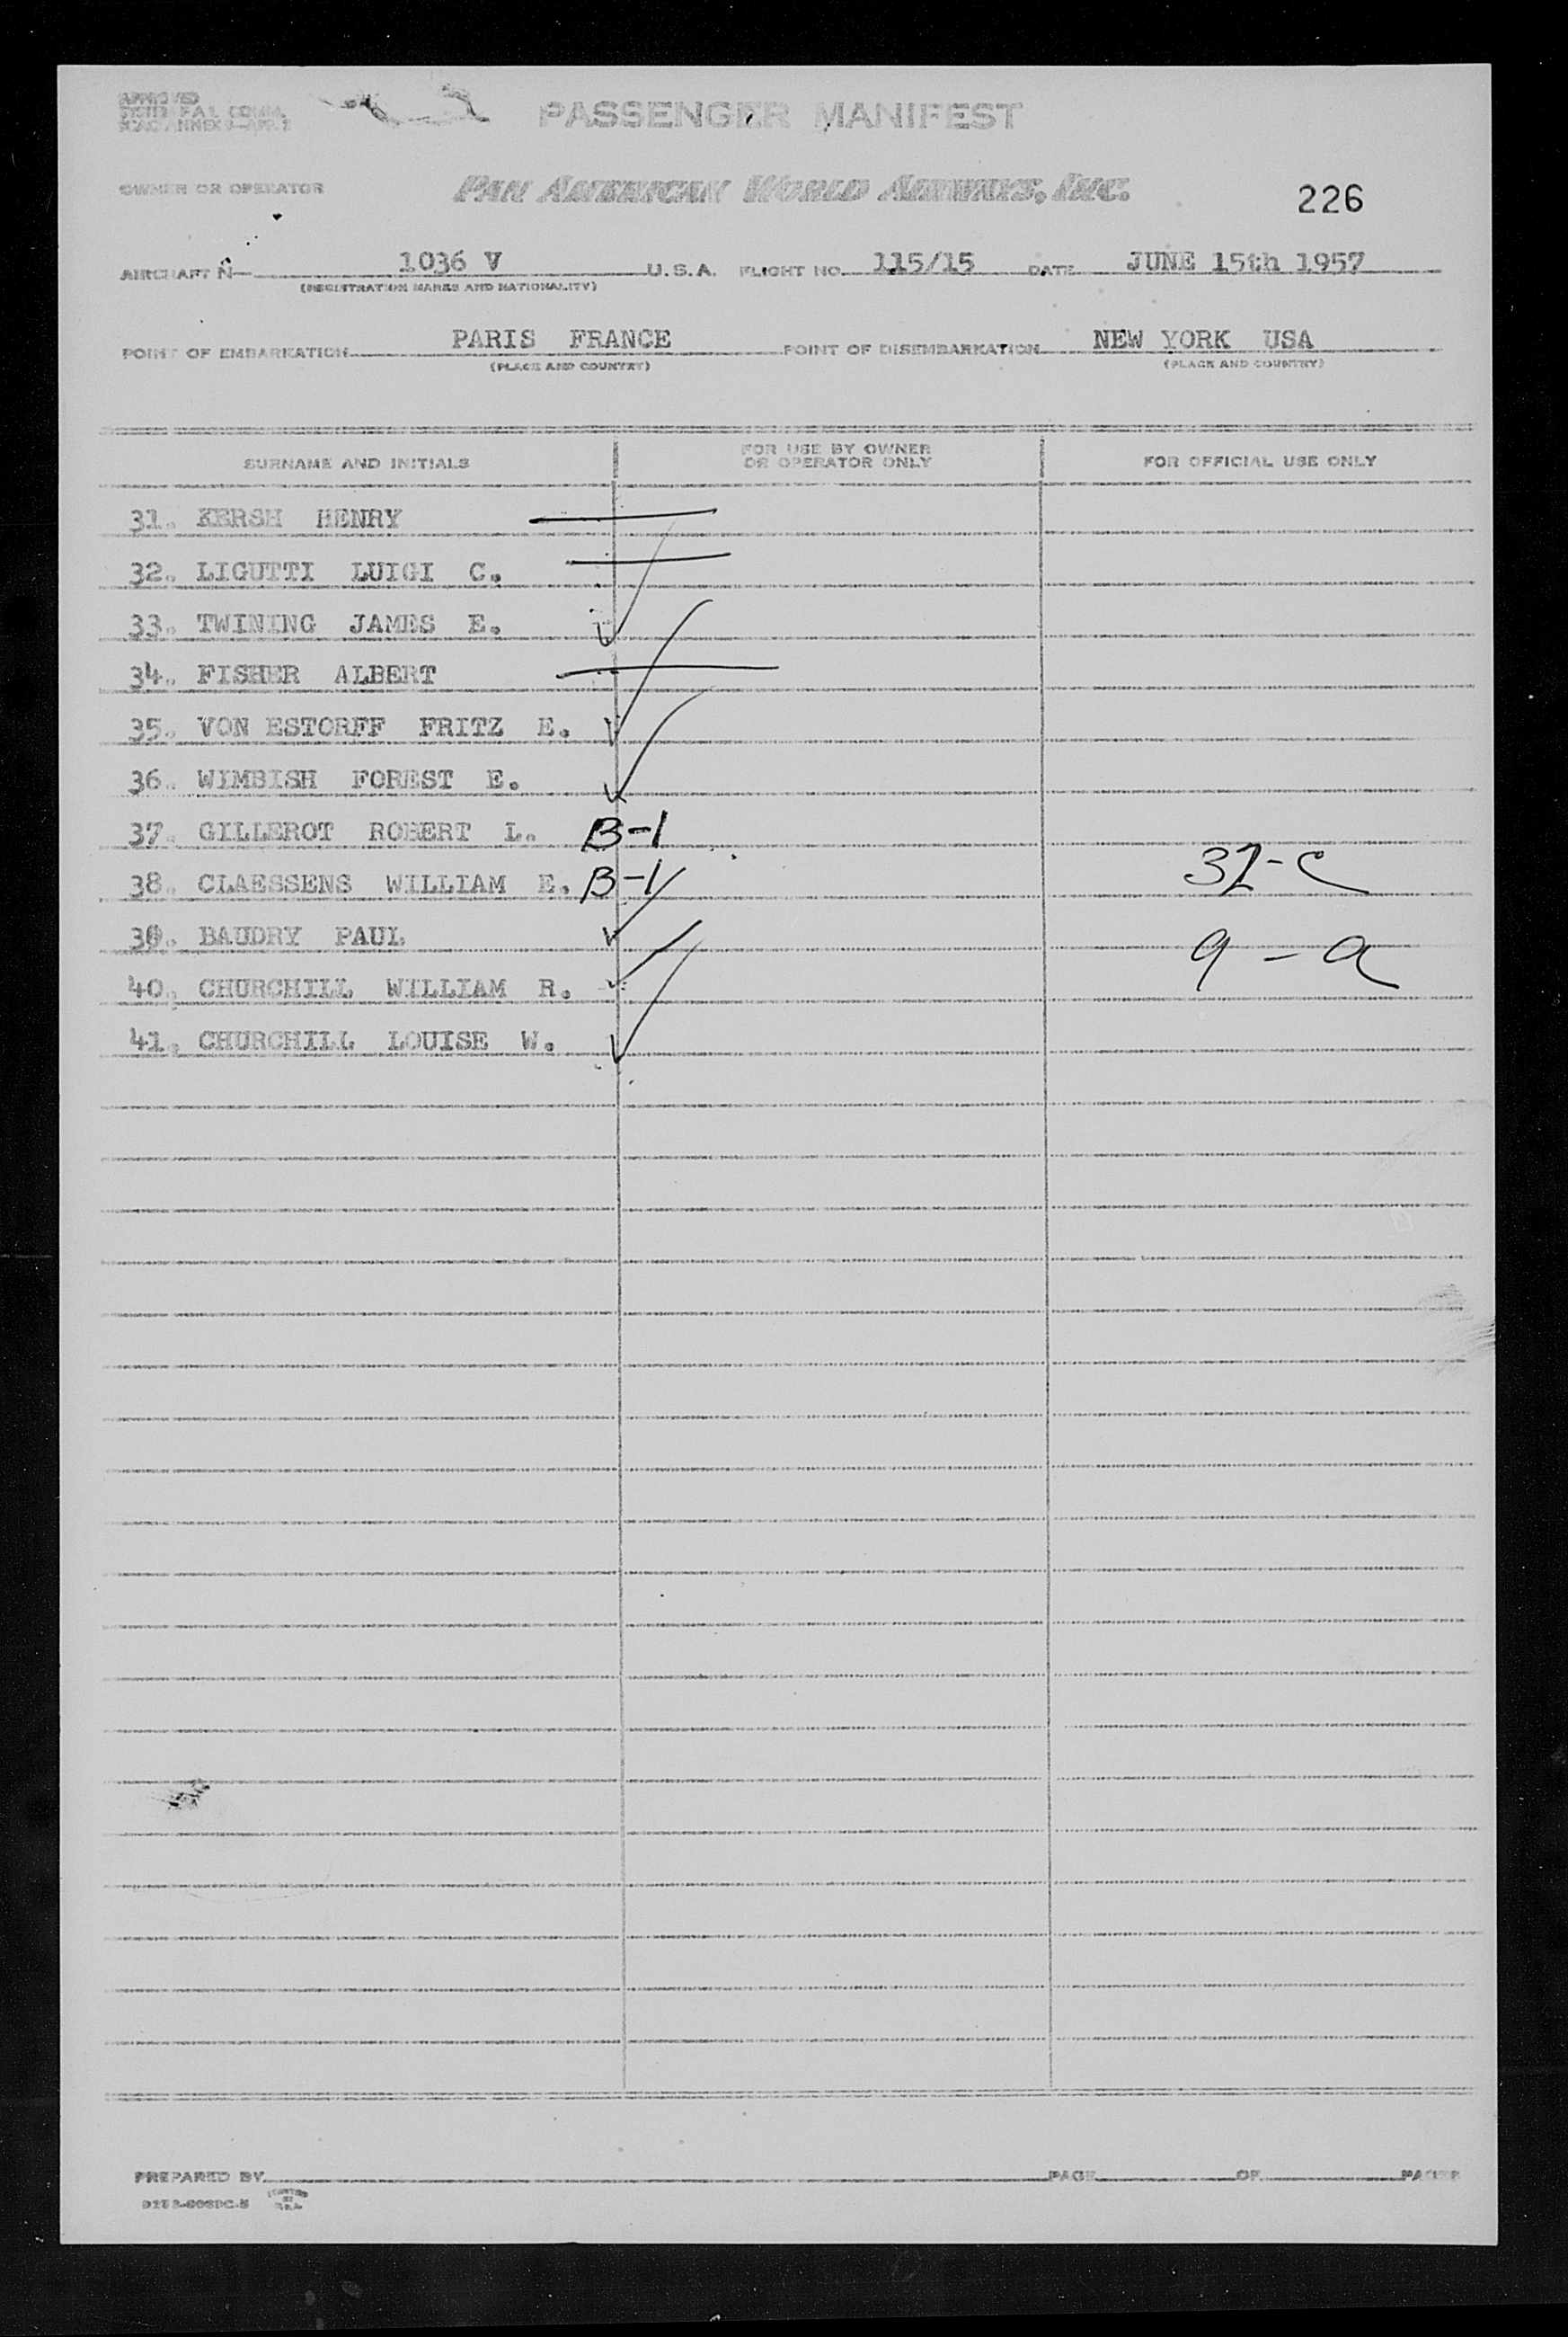 APPROVED
PASSENGER MANIFEST
OWNER OR OPERATOR PAN AMERICAN WORLD AIRWAYS, INC. 226
AIRCRAFT N— 1036 V U.S.A. FLIGHT NO. 115/15 DATE JUNE 15th 1957
(REGISTRATION MARKS AND NATIONALITY)
POINT OF EMBARKATION PARIS FRANCE POINT OF DISEMBARKATION NEW YORK USA
(PLACE AND COUNTRY) (PLACE AND COUNTRY)
SURNAME AND INITIALS FOR USE BY OWNER OR OPERATOR ONLY FOR OFFICIAL USE ONLY
31. KERSH HENRY
32. LIGUTTI LUIGI C.
33. TWINING JAMES E.
34. FISHER ALBERT
35. VON ESTORFF FRITZ E.
36. WIMBISH FOREST E.
37. GILLEROT ROBERT L. B-1
38. CLAESSENS WILLIAM E. B-1 32-C
39. BAUDRY PAUL 9-a
40. CHURCHILL WILLIAM R.
41. CHURCHILL LOUISE W.
PREPARED BY PAGE OF PAGES